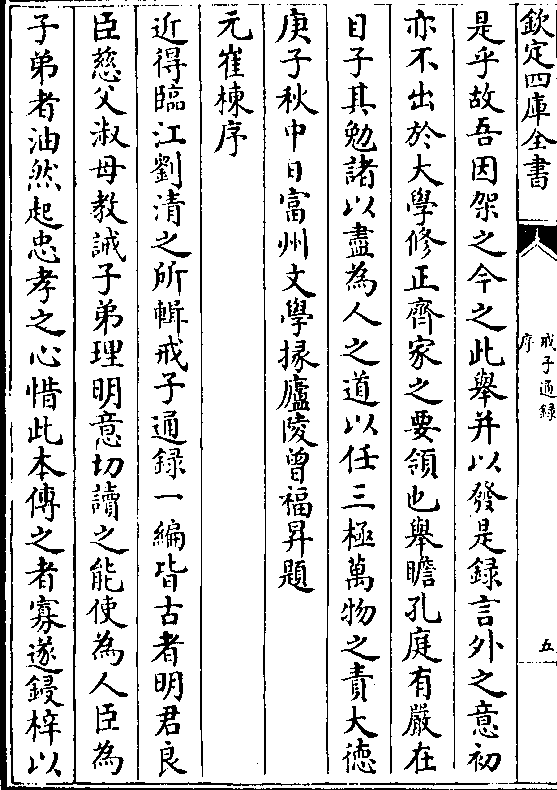 欽定四庫全書
戒子通録
序
五
是乎故吾因架之今之此舉并以發是録言外之意初
亦不出於大學修正齊家之要領也舉瞻孔庭有嚴在
目子其勉諸以盡為人之道以任三極萬物之責大徳
庚子秋中日富州文學掾廬陵曾福昇題
元崔棟序
近得臨江劉清之所輯戒子通録一編皆古者明君良
臣慈父淑母教誡子弟理明意切讀之能使為人臣為
子弟者油然起忠孝之心惜此本傳之者寡遂鋟梓以